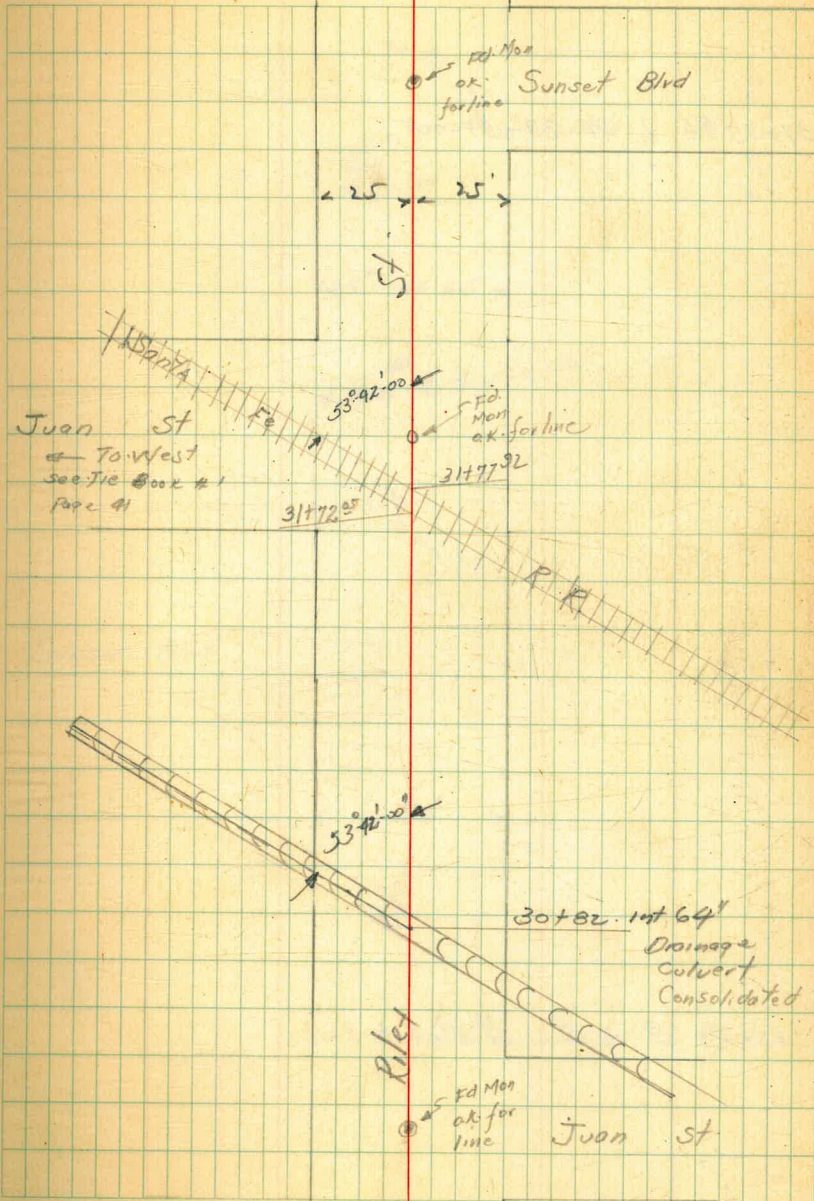 Fd. Mon
ok.
for line
Sunset Blvd
25 25'
St.
Santa Fe
53°-42'-00
Fd.
Mon
o.k. for line
Juan St
← To West
see Tie Book #1
Page 41
31+77 92
31+72
R R.
53°-42'-00"
30+82 int 64"
Drainage
Culvert
Consolidated
Riley
Fd Mon
ok for
line
Juan St.